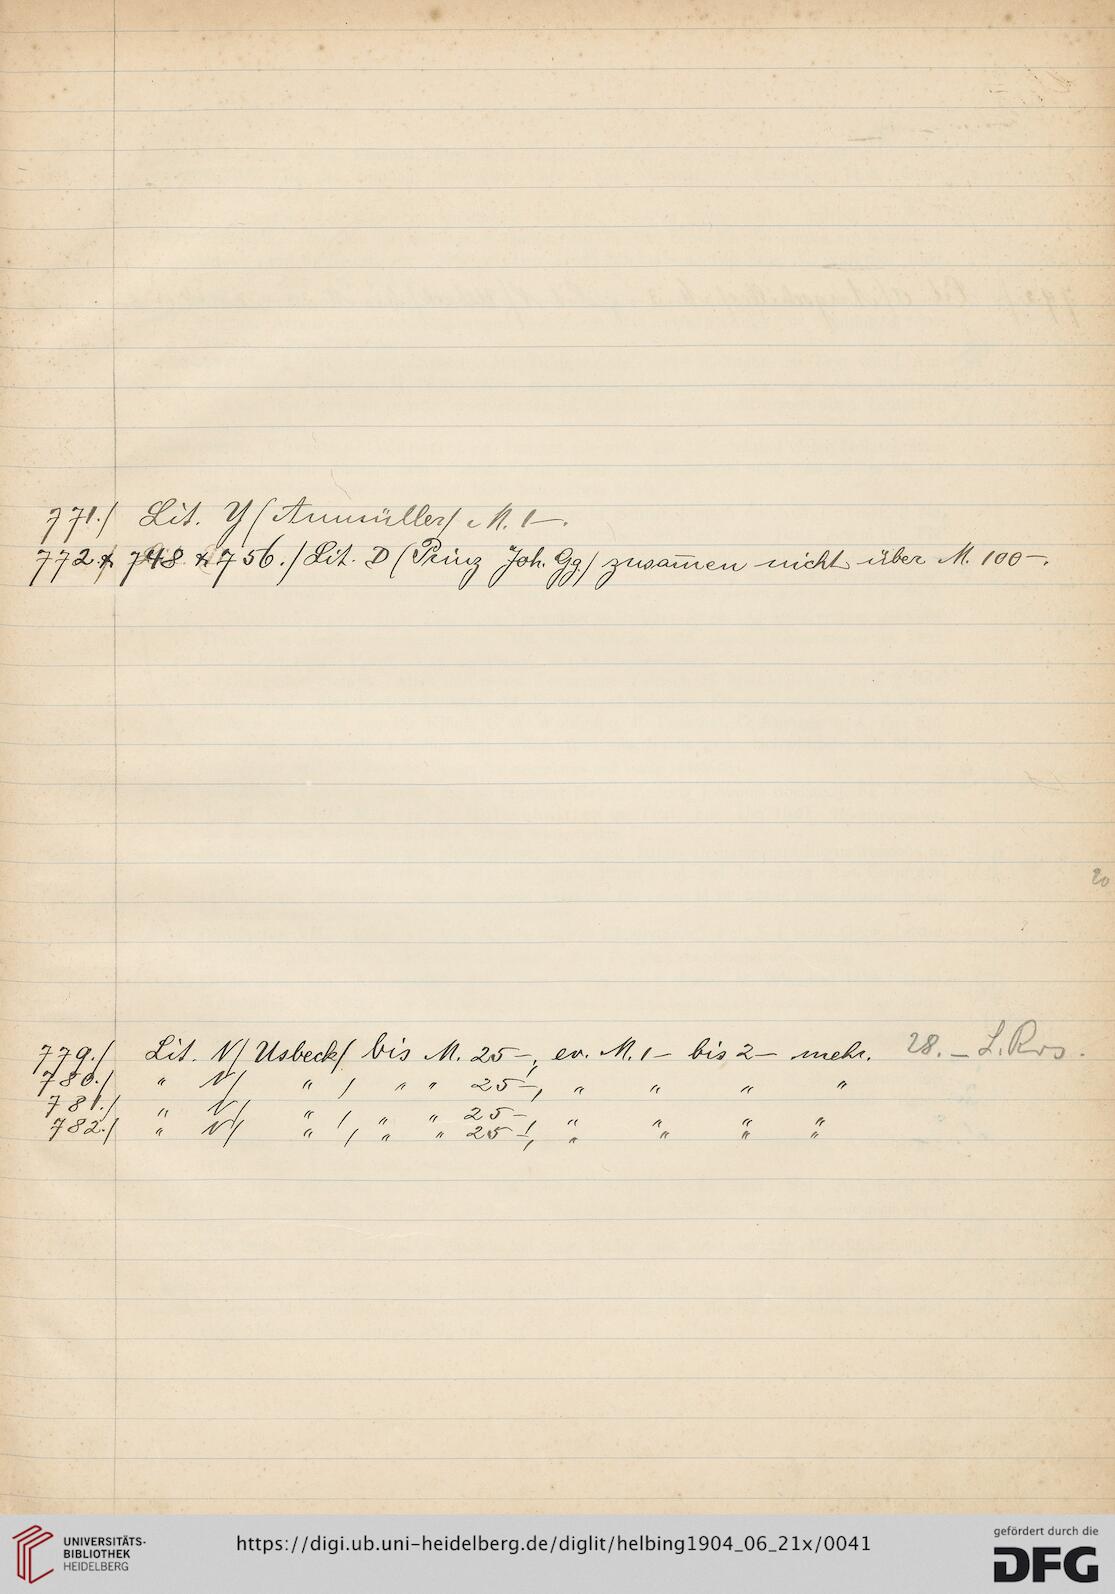 771./ Lit. Y (Aumüller) M. 1–.
772. & 748 & 756./ Lit. D (Prinz Joh. Gg) zusam̅en nicht über M. 100–.
20
779./ Lit. N/ Usbeck/ bis M. 25–, ev. M. 1– bis 2– mehr. 28.–
780./ " N/ " / " " 25–, " " " "
781./ " N/ " / " " 25–, " " " "
782./ " N/ " / " " 25–, " " " "
UNIVERSITÄTS-
BIBLIOTHEK
HEIDELBERG
https://digi.ub.uni-heidelberg.de/diglit/helbing1904_06_21x/0041
gefördert durch die
DFG